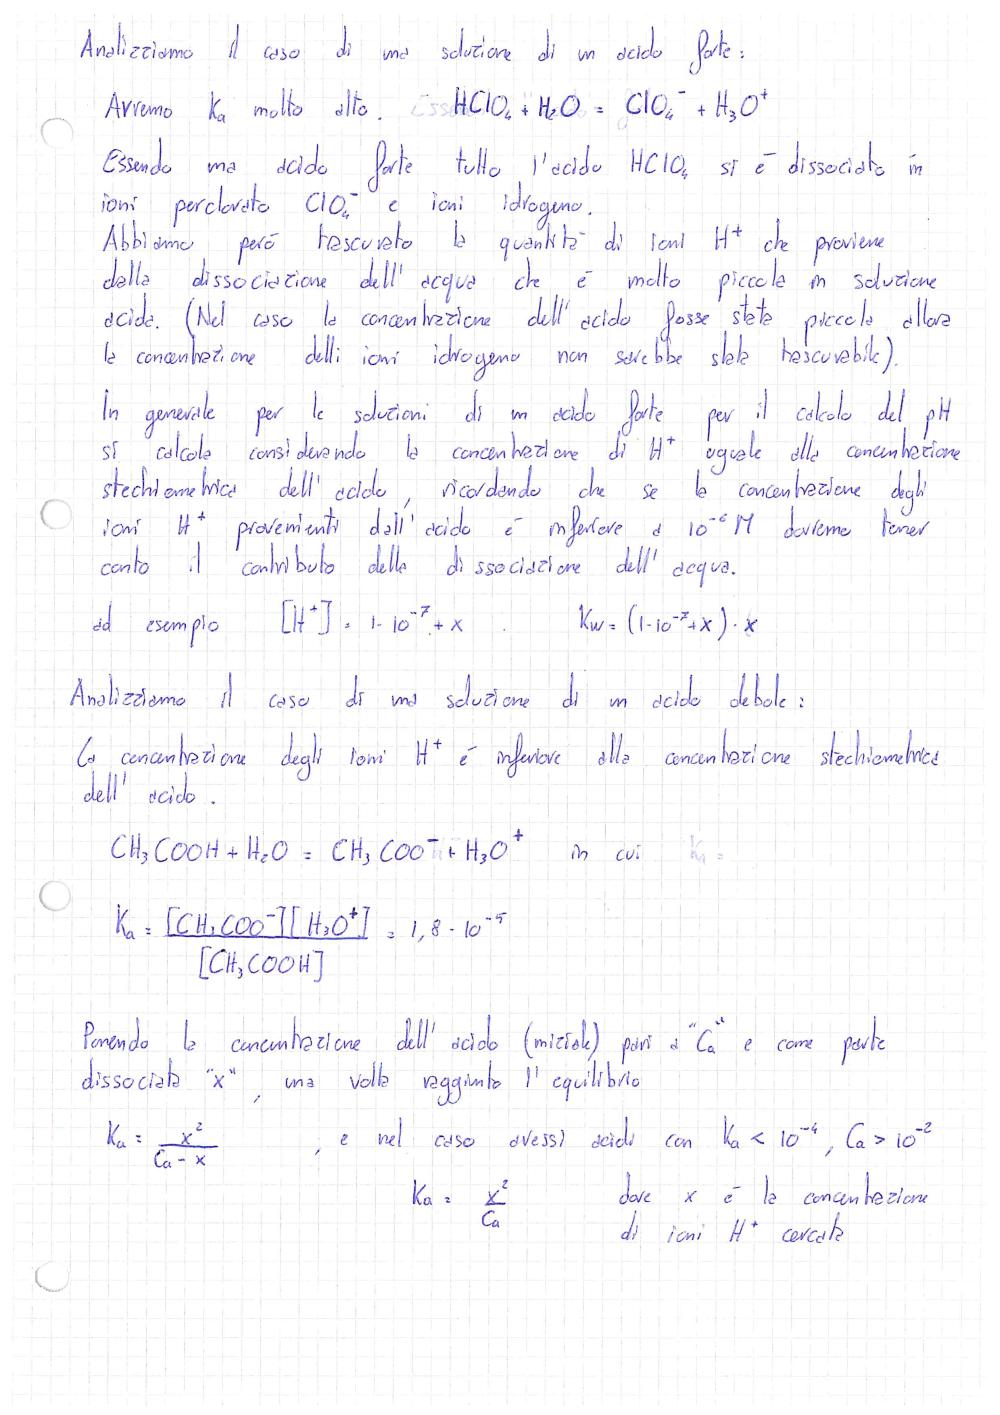 Analizziamo il caso di una soluzione di un acido forte:
Avremo Ka molto alto. HClO₄ + H₂O = ClO₄⁻ + H₃O⁺
Essendo una acido forte tutto l'acido HClO₄ si è dissociato in
ioni perclorato ClO₄⁻ e ioni idrogeno.
Abbiamo però trascurato la quantità di ioni H⁺ che proviene
dalla dissociazione dell'acqua che è molto piccola in soluzione
acida. (Nel caso la concentrazione dell'acido fosse stata piccola allora
la concentrazione delli ioni idrogeno non sarebbe stata trascurabile).
In generale per le soluzioni di un acido forte per il calcolo del pH
si calcola considerando la concentrazione di H⁺ uguale alla concentrazione
stechiometrica dell'acido, ricordando che se la concentrazione degli
ioni H⁺ provenienti dall'acido è inferiore a 10⁻⁶ M dovremo tener
conto il contributo della dissociazione dell'acqua.
ad esempio [H⁺] = 1·10⁻⁷ + x . Kw = (1·10⁻⁷+x)·x
Analizziamo il caso di una soluzione di un acido debole:
La concentrazione degli ioni H⁺ è inferiore alla concentrazione stechiometrica
dell'acido.
CH₃COOH + H₂O = CH₃COO⁻ + H₃O⁺ in cui
Ka = [CH₃COO⁻][H₃O⁺] = 1,8·10⁻⁵
[CH₃COOH]
Ponendo la concentrazione dell'acido (iniziale) pari a "Ca" e come parte
dissociata "x", una volta raggiunto l'equilibrio
Ka = x² , e nel caso avessi acidi con Ka < 10⁻⁴, Ca > 10⁻²
Ca - x
Ka = x² dove x è la concentrazione
Ca di ioni H⁺ cercata